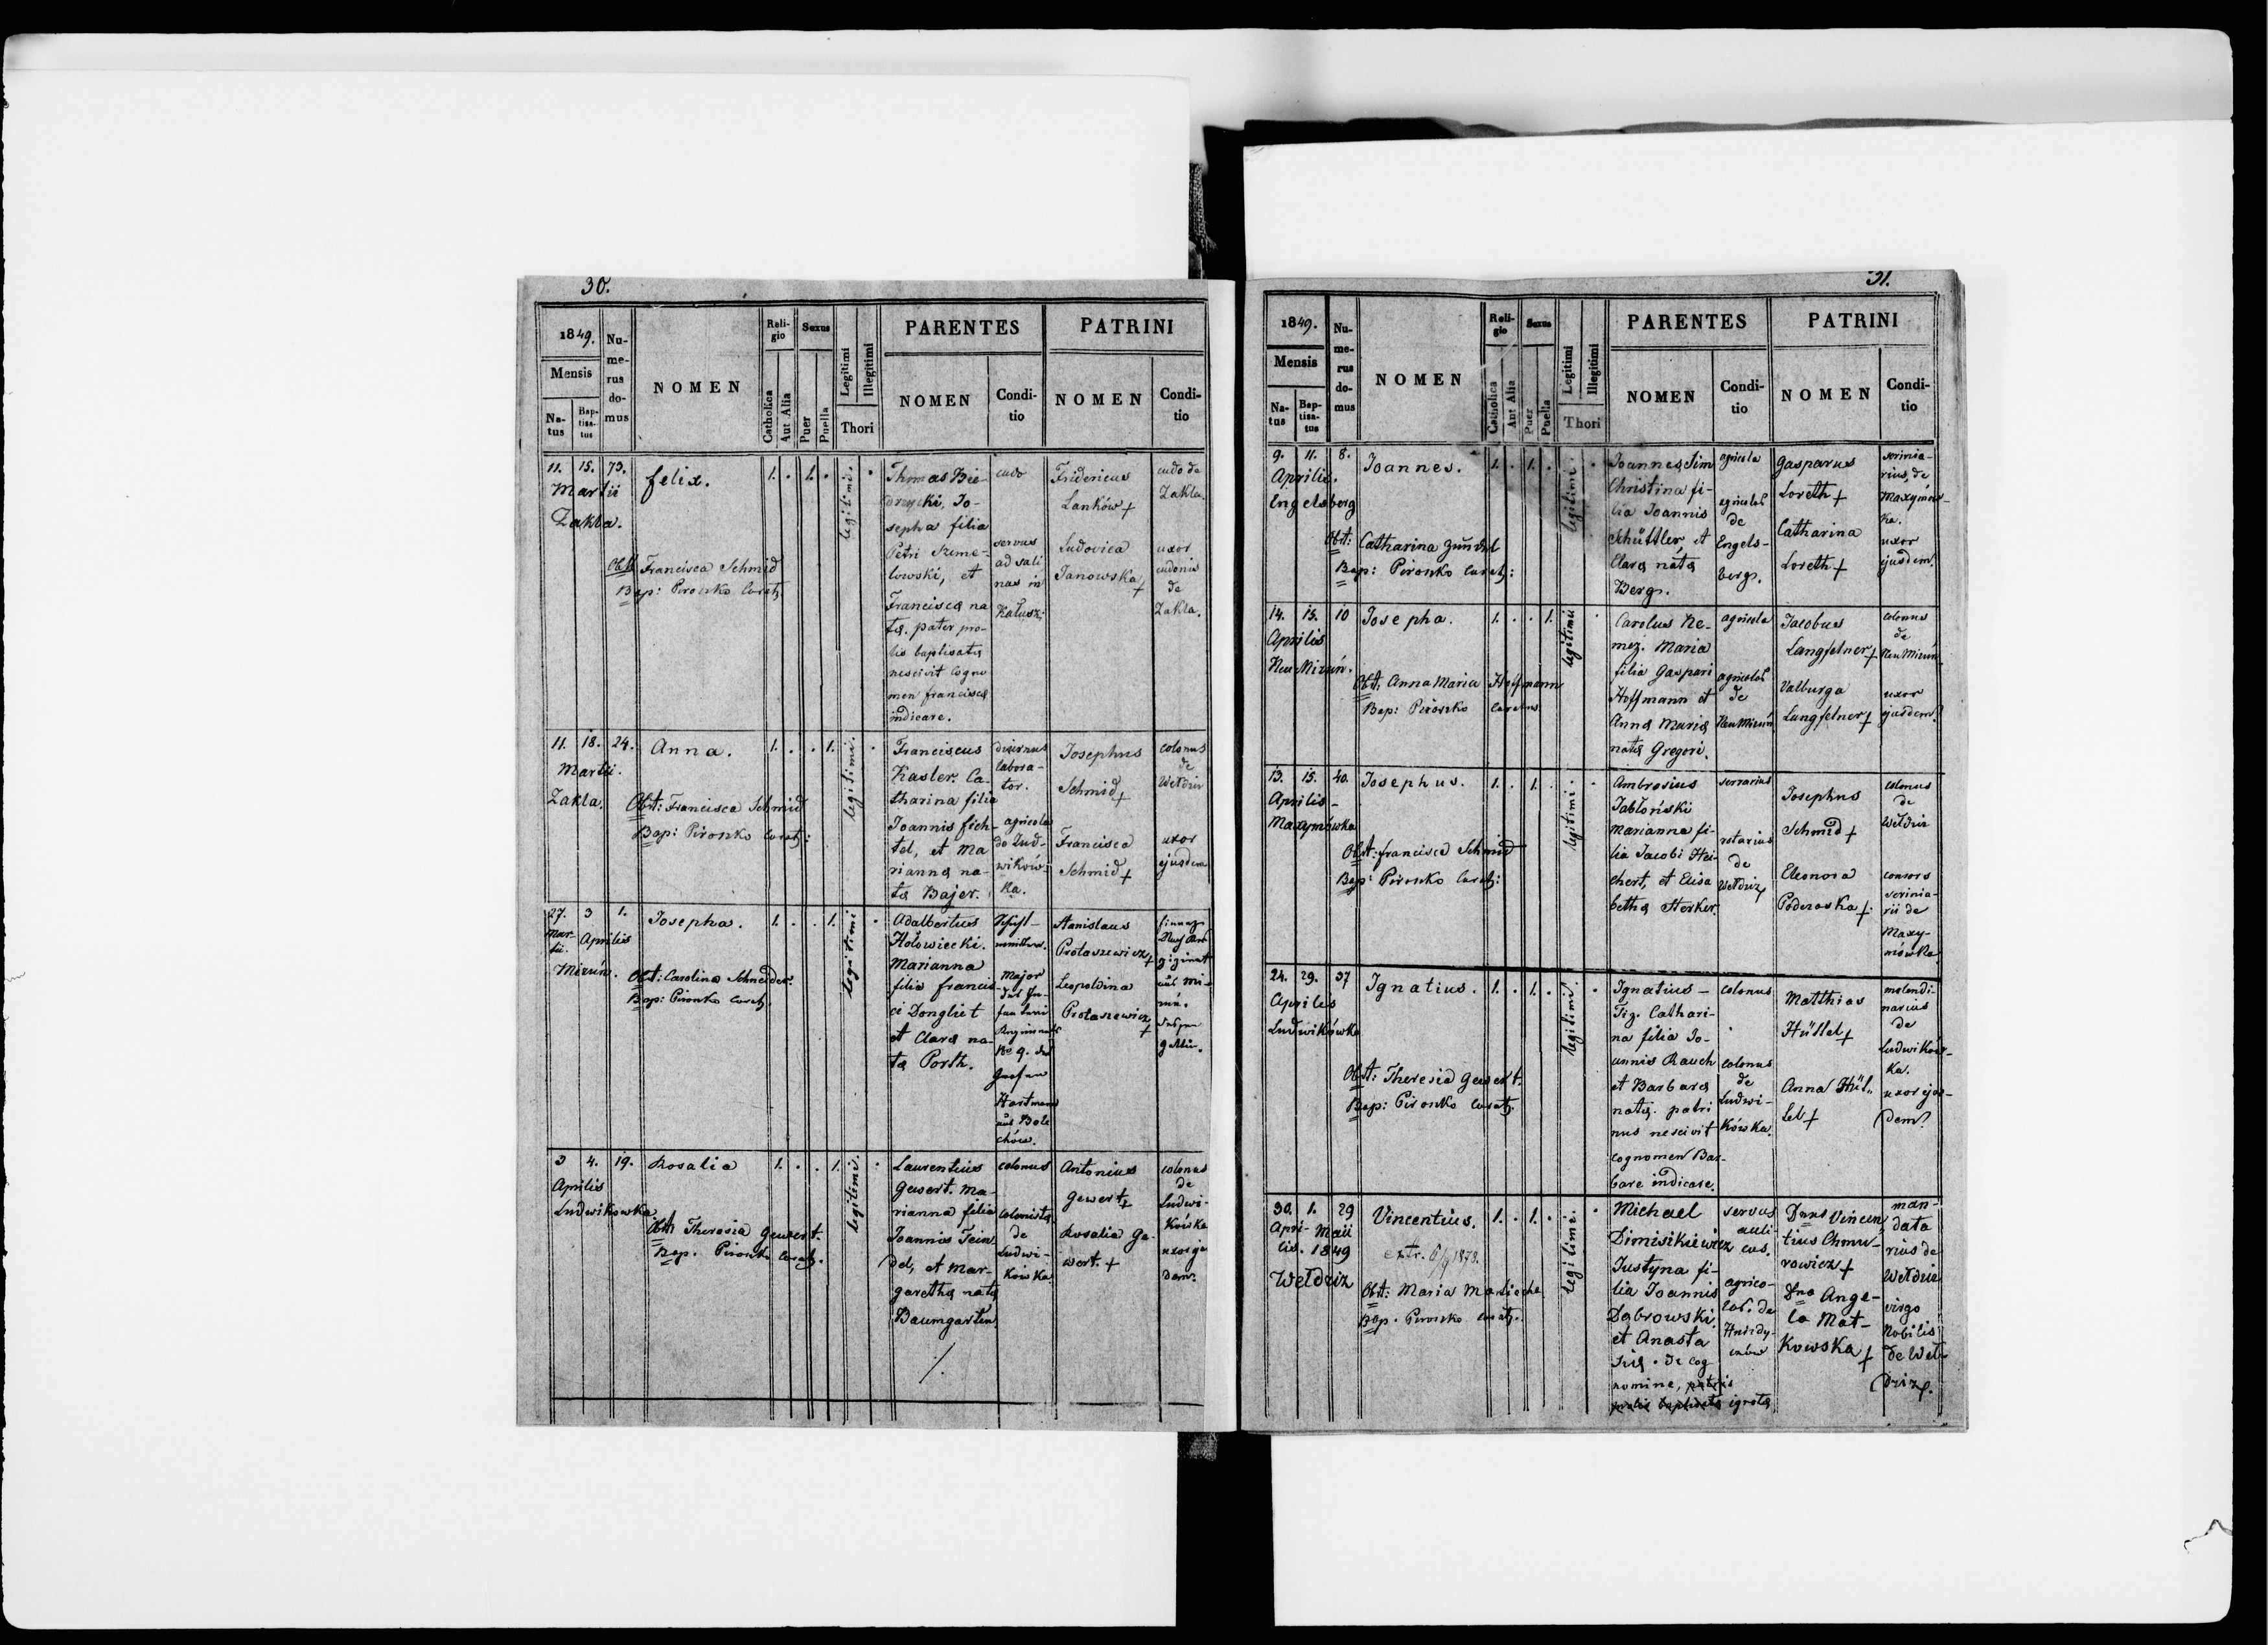 30.
1849.
Mensis
Na-
tus
Bap-
tisa-
tus
Nu-
me-
rus
do-
mus
NOMEN
Reli-
gio
Catholica
Aut Alia
Sexus
Puer
Puella
Legitimi
Illegitimi
Thori
PARENTES
NOMEN
Condi-
tio
PATRINI
NOMEN
Condi-
tio
11. 15. 73.
Martii
Zakla.
Felix.
Obst: Francisca Schmid
Bap: Pironko Curat:
1. . 1. .
legitimi.
Thomas Bie-
drzycki, Jo-
sepha filia
Petri Szme-
lowski, et
Francisca na
ta. pater pro-
lis baptisata
nescivit Cogno
men francisca
indicare.
cudo
servus
ad sali
nas in
Kałusz;
Fridericus
Lanków +
Ludovica
Janowska +
cudo de
Zakla.
uxor
cudonis
de
Zakla.
11. 18. 24.
Martii.
Zakla.
Anna.
Obst: Francisca Schmid
Bap: Pironko Curat:
1. . . 1.
legitimi.
Franciscus
Kasler. Ca-
tharina filia
Joannis Fich-
tel, et Ma
rianna na-
ta Bajer.
diurnus
labora-
tor.
agricola
de Lud-
wików-
ka.
Josephus
Schmid +
Francisca
Schmid +
colonus
de
Wełdzir
uxor
ejusdem
27. 3 1.
Mar-
tii. Aprilis
Mizuń.
Josepha.
Obst: Carolina Schneider.
Bap: Pironko Curat:
1. . . 1.
legitimi
Adalbertus
Hołowiecki.
Marianna
filia Francis-
ci Dongliet
et Clara na-
ta Porth.
Major
No 9. des
Grafen
Hartmann
aus Bole
chów.
Stanislaus
Protaszewicz +
Leopoldina
Protaszewicz +
3 4. 19.
Aprilis
Ludwikowka
Rosalia
Obst: Theresia Gewert.
Bap. Pironko Curat:
1. . . 1.
legitimi.
Laurentius
Gewert. Ma-
rianna filia
Joannis Tein
del, et Mar-
garetha nata
Baumgarten
colonus
colonista
de
Ludwi-
kówka
Antonius
Gewert +
Rosalia Ge-
wert. +
colonus
de
Ludwi-
kówka
uxor eju
dem.
31.
1849.
Mensis
Na-
tus
Bap-
tisa-
tus
Nu-
me-
rus
do-
mus
NOMEN
Reli-
gio
Catholica
Aut Alia
Sexus
Puer
Puella
Legitimi
Illegitimi
Thori
PARENTES
NOMEN
Condi-
tio
PATRINI
NOMEN
Condi-
tio
9. 11. 8.
Aprilis.
Engelsberg
Joannes.
Obst: Catharina Zündel
Bap: Pironko Curat:
1. . 1. .
legitimi.
Joannes Tim
Christina fi-
lia Joannis
Schüttler et
Clara náta
Berg.
agricola
agricolae
de
Engels-
berg.
Gasparus
Loreth +
Catharina
Loreth +
scrinia-
rius, de
Maxymów-
ka.
uxor
ejusdem.
14. 15. 10
Aprilis
Neu Mizuń.
Josepha.
Obst: Anna Maria Hoffmann
Bap: Pironko Curatus
1. . . 1.
legitimi
Carolus Ne-
mez. Maria
filia Gaspari
Hoffmann et
Anna Maria
nata Gregori.
agricola
agricolae
de
Neu Mizuń
Jacobus
Langfelner +
Valburga
Langfelner +
colonus
de
Neu Mizuń.
uxor
ejusdem.
13. 15. 40.
Aprilis -
Maxymówka
Josephus.
Obst: Francisca Schmid
Bap: Pironko Curat:
1. . 1. .
legitimi.
Ambrosius
Jabłoński
Marianna fi-
lia Jacobi Hei-
chert, et Elisa
betha Sterker.
serrarius
rotarius
de
Wełdziz
Josephus
Schmid +
Eleonora
Podczaska +
colonus
de
Wełdzir
consors
scrinia-
rii de
Maxy-
mówka
24. 29. 37
Aprilis
Ludwikówka
Ignatius.
Obst: Theresia Gewert.
Bap: Pironko Curat:
1. . 1. .
legitimi.
Ignatius -
Tiz. Cathari-
na filia Jo-
annis Rauch
et Barbara
nata. patri
nus nescivit
cognomen Bar-
bare indicare.
colonus
colonus
de
Ludwi-
kówka.
Matthias
Hüttel +
Anna Hüt-
tel +
molendi-
narius
de
Ludwików-
ka.
uxor ejus-
dem.
30. 1. 29
Apri- Maii
lis. 1849
Wełdziz
Vincentius.
extr. 6/9 1878.
Obst: Maria Masliocha
Bap. Pironko Curat:
1. . 1. .
legitimi.
Michael
Dimisikiewicz
Justyna fi-
lia Joannis
Dąbrowski.
et Anasta
sia. de cog
nomine, patris
prolis baptisata ignota
servus
auli-
cus.
agrico-
lae. de
Dnus Vincen
tius Chmu-
rowicz +
Dna Ange-
la Mat-
kowska +
man-
data
rius de
Wełdzir
virgo
Nobilis
de Weł-
dziz.